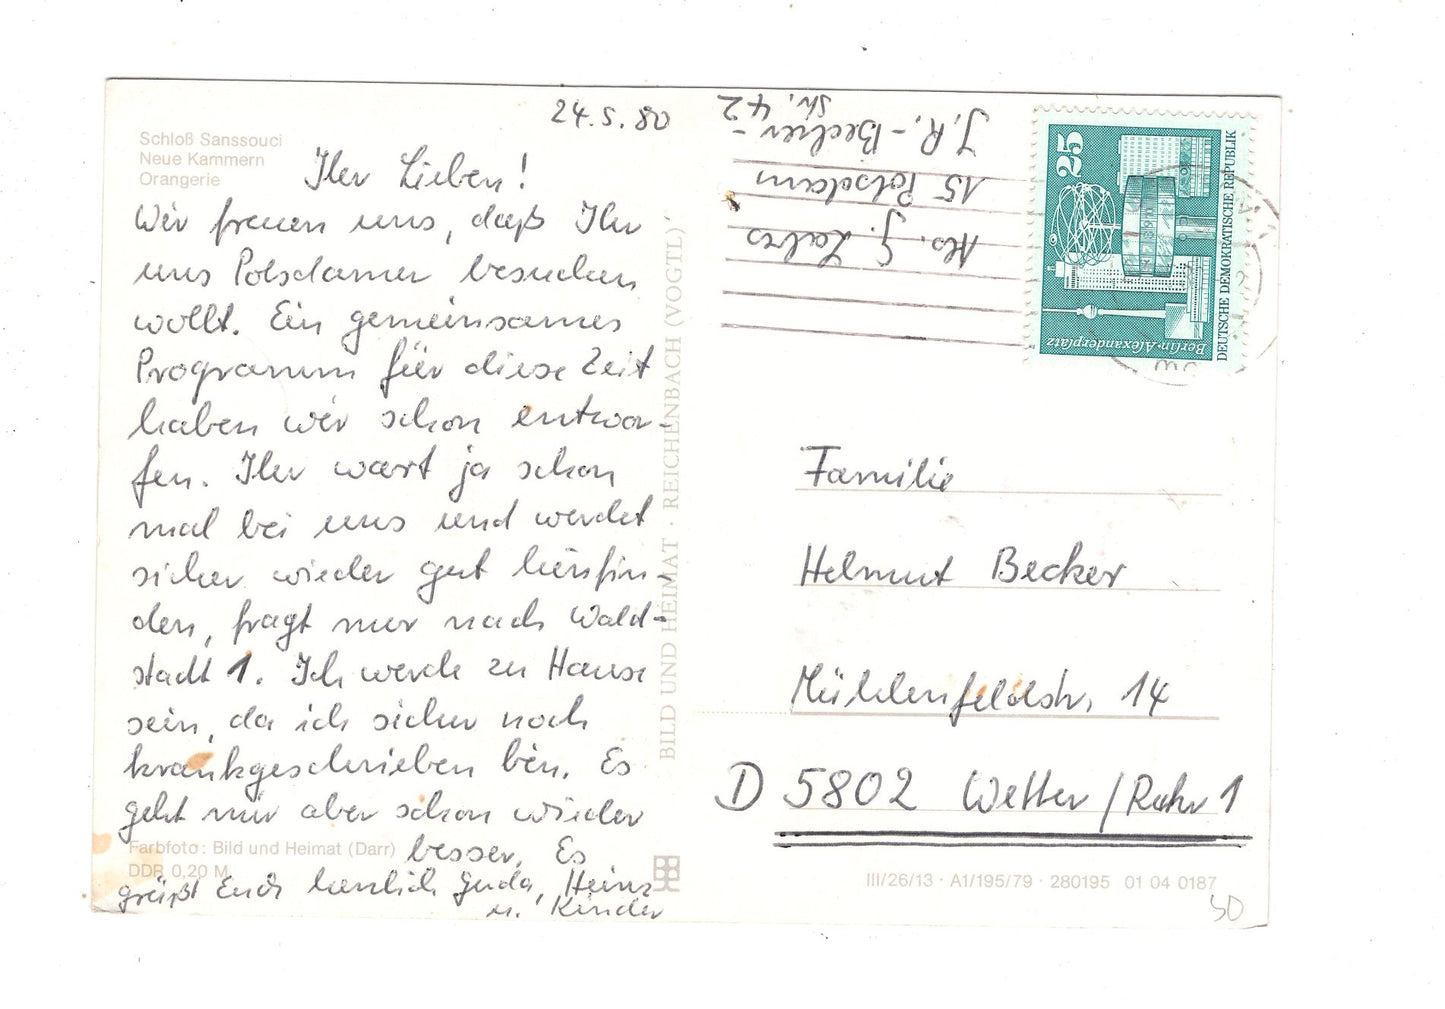 Schloß Sanssouci
Neue Kammern
Orangerie
24.5.80
Ihr Lieben!
Wir freuen uns, daß Ihr
uns Potsdamer besuchen
wollt. Ein gemeinsames
Programm für diese Zeit
haben wir schon entwor-
fen. Ihr wart ja schon
mal bei uns und werdet
sicher wieder gut hinfin-
den, fragt nur nach Wald-
stadt 1. Ich werde zu Hause
sein, da ich sicher noch
krankgeschrieben bin. Es
geht mir aber schon wieder
besser. Es
grüßt Euch herzlich Gerda, Heinz
u. Kinder
Farbfoto: Bild und Heimat (Darr)
DDR 0,20 M
BILD UND HEIMAT · REICHENBACH (VOGTL)
Abs. G.
15 Potsdam
J.R.-Becher-
Str. 42
25
Berlin-Alexanderplatz
DEUTSCHE DEMOKRATISCHE REPUBLIK
Familie
Helmut Becker
Mühlenfeldstr. 14
D 5802 Wetter/Ruhr 1
III/26/13 · A1/195/79 · 280195 01 04 0187
50